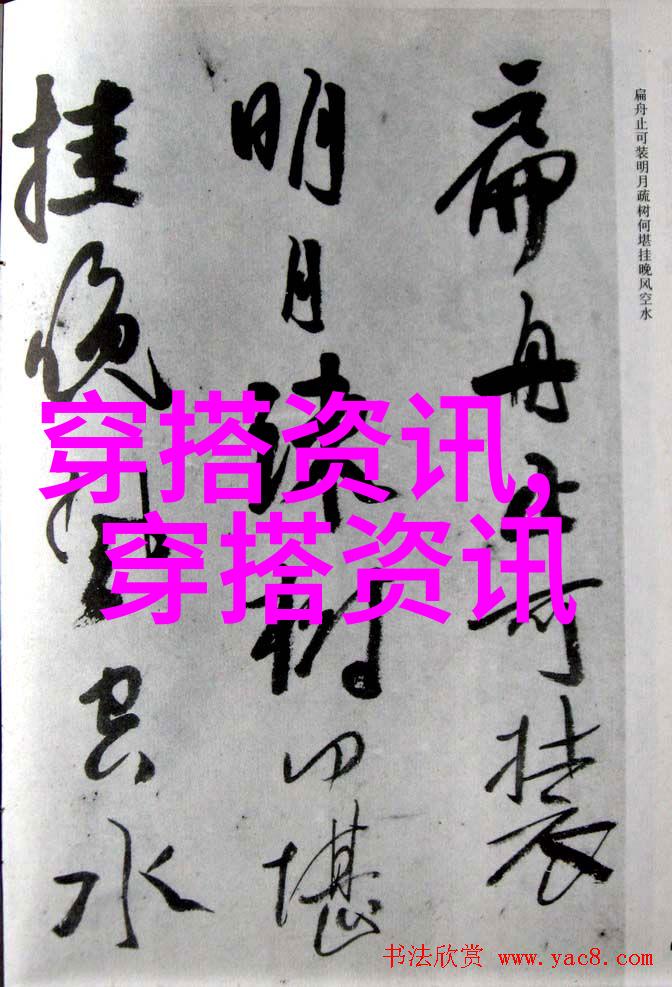 扁舟止可装明月疏树何堪挂晚风空水
扁舟止可装
明月疏树何堪
挂晚风空水
穿搭资讯,
穿搭资讯
书法欣赏 www.yac8.com